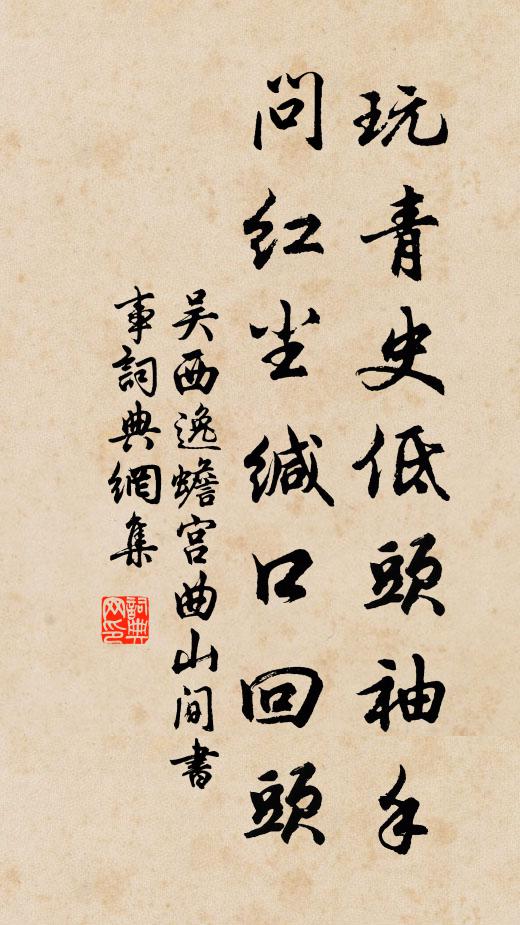 玩青史低頭袖手
問红尘缄口回頭
吴西逸蟾宫曲山间書
事詞典網集
詞典网印